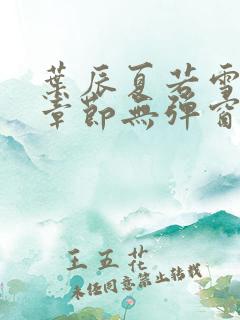 葉辰夏若雪
章節無彈窗
王五花
未經同意禁止轉載